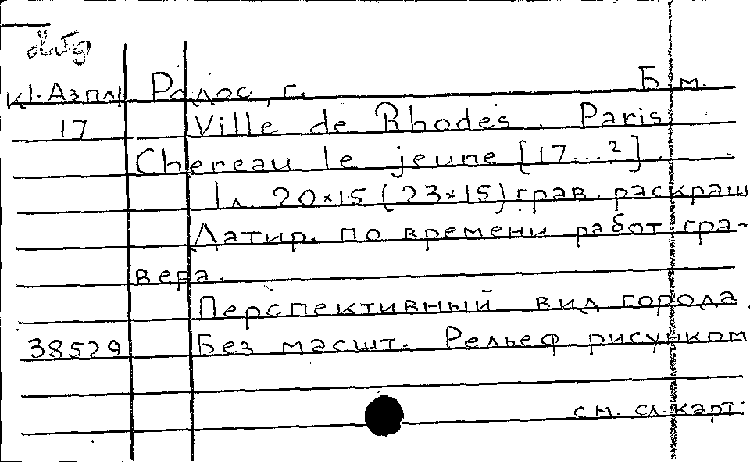 К1-Азпл Родос, г. Б.м.
17 Ville de Rhodes. Paris
Chereau le jeune [17..?].
1л. 20×15 (23×15) грав. раскраш
Датир. по времени работ гра-
вера.
Перспективный вид города.
38529 Без масшт. Рельеф рисунком
см. сл. карт.